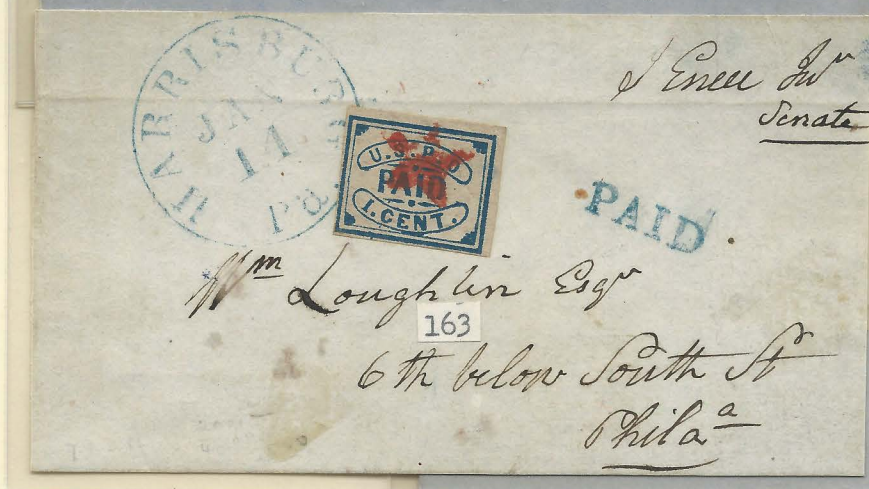 HARRISBURG Pa.
JAN
14
U.S.P.O
PAID
1.CENT.
Senate
PAID
Wm Loughlin Esqr
163
6th below South St
Philaa